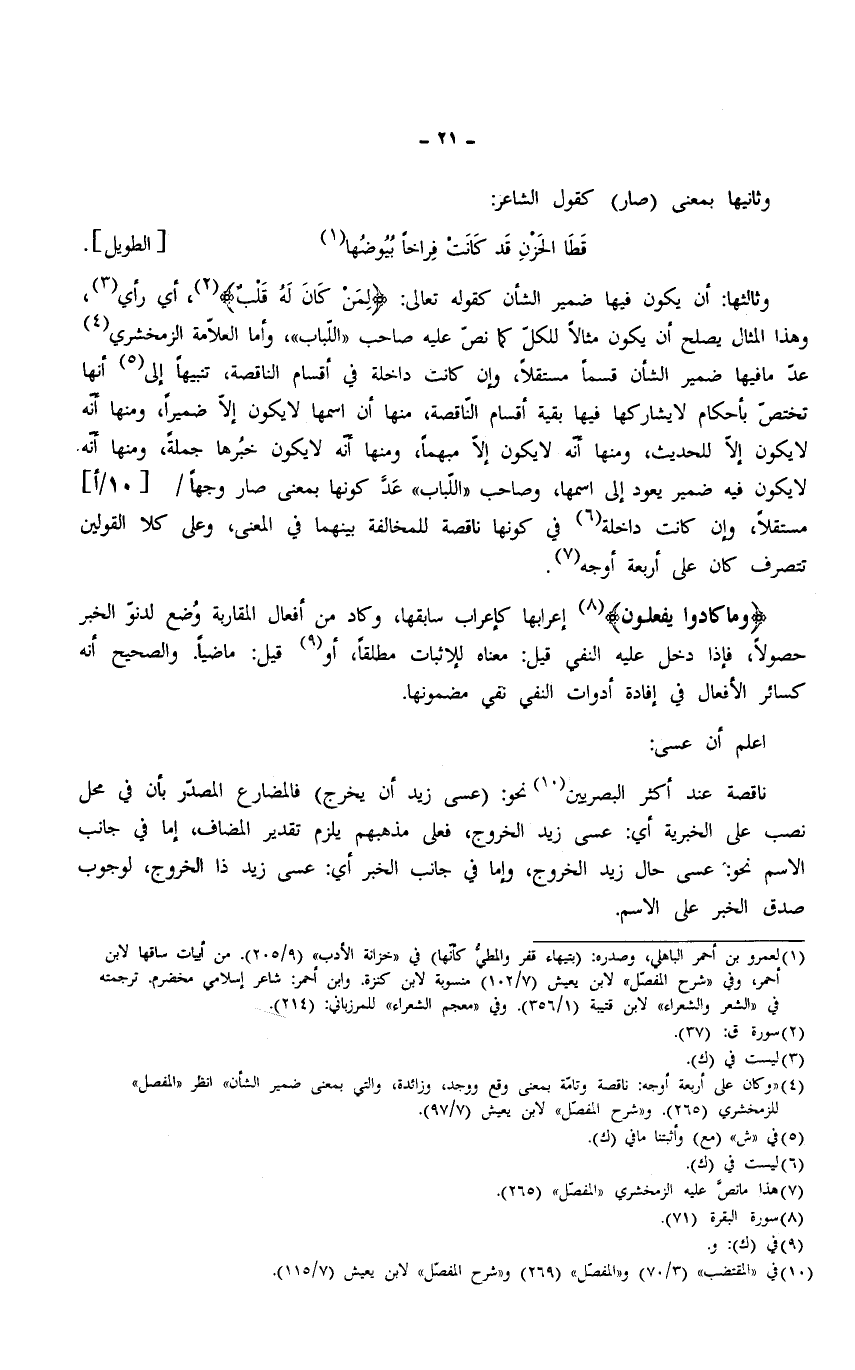 ـ ٢١ ـ
وثانيها بمعنى (صار) كقول الشاعر:
قَطَا الحَزْنِ قَد كَانَتْ فِراخاً بُيُوضُها(١) [الطويل].
وثالثها: أن يكون فيها ضمير الشأن كقوله تعالى: ﴿لِمَنْ كَانَ لَهُ قَلْبٌ﴾(٢)، أي رأي(٣)،
وهذا المثال يصلح أن يكون مثالاً للكلّ كما نصّ عليه صاحب «اللّباب»، وأما العلاّمة الزمخشري(٤)
عدّ مافيها ضمير الشأن قسماً مستقلاً، وإن كانت داخلة في أقسام الناقصة، تنبيهاً إلى(٥) أنها
تختصّ بأحكام لايشاركها فيها بقية أقسام النّاقصة، منها أن اسمها لايكون إلاّ ضميراً، ومنها أنّه
لايكون إلاّ للحديث، ومنها أنّه لايكون إلاّ مبهماً، ومنها أنّه لايكون خبُرها جملةً، ومنها أنّه
لايكون فيه ضمير يعود إلى اسمها، وصاحب «اللّباب» عَدَّ كونها بمعنى صار وجهاً / [١٠/أ]
مستقلاً، وإن كانت داخلة(٦) في كونها ناقصة للمخالفة بينهما في المعنى، وعلى كلا القولين
تتصرف كان على أربعة أوجه(٧).
﴿وماكادوا يفعلون﴾(٨) إعرابها كإعراب سابقها، وكاد من أفعال المقاربة وُضع لدنوّ الخبر
حصولاً، فإذا دخل عليه النفي قيل: معناه للإثبات مطلقاً، أو(٩) قيل: ماضياً. والصحيح أنه
كسائر الأفعال في إفادة أدوات النفي نفي مضمونها.
اعلم أن عسى:
ناقصة عند أكثر البصريين(١٠) نحو: (عسى زيد أن يخرج) فالمضارع المصدّر بأن في محل
نصب على الخبرية أي: عسى زيد الخروج، فعلى مذهبهم يلزم تقدير المضاف، إما في جانب
الاسم نحو: عسى حال زيد الخروج، وإما في جانب الخبر أي: عسى زيد ذا الخروج، لوجوب
صدق الخبر على الاسم.
(١) لعمرو بن أحمر الباهلي، وصدره: (بتيهاء قفر والمطيُّ كأنّها) في «خزانة الأدب» (٢٠٥/٩). من أبيات ساقها لابن
أحمر، وفي «شرح المفصّل» لابن يعيش (١٠٢/٧) منسوبة لابن كنزة. وابن أحمر: شاعر إسلامي مخضرم. ترجمته
في «الشعر والشعراء» لابن قتيبة (٣٥٦/١). وفي «معجم الشعراء» للمرزباني: (٢١٤).
(٢) سورة ق: (٣٧).
(٣) ليست في (ك).
(٤) «وكان على أربعة أوجه: ناقصة وتامّة بمعنى وقع ووجد، وزائدة، والتي بمعنى ضمير الشأن» انظر «المفصل»
للزمخشري (٢٦٥). و«شرح المفصّل» لابن يعيش (٩٧/٧).
(٥) في «ش» (مع) وأثبتنا مافي (ك).
(٦) ليست في (ك).
(٧) هذا مانصَّ عليه الزمخشري «المفصّل» (٢٦٥).
(٨) سورة البقرة (٧١).
(٩) في (ك): و.
(١٠) في «المقتضب» (٧٠/٣) و«المفصّل» (٢٦٩) و«شرح المفصّل» لابن يعيش (١١٥/٧).